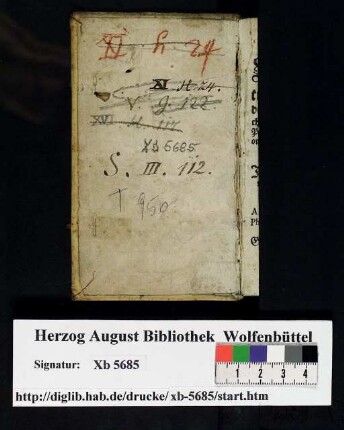 XI h 24
XI H. 24.
V. J. 122
XVI H. 117
Xb 5685
S. III. 112.
T 950
Herzog August Bibliothek Wolfenbüttel
Signatur: Xb 5685
1 2 3 4
http://diglib.hab.de/drucke/xb-5685/start.htm